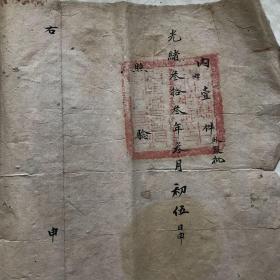 右　申
光緒叁拾叁年叁月初伍日申
內壹件
照驗